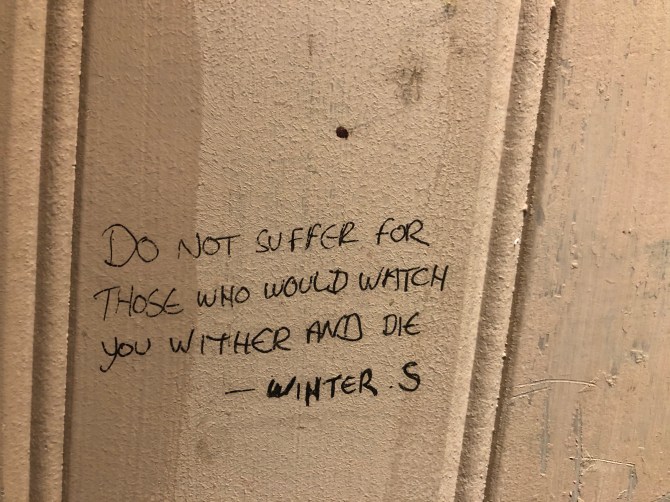 DO NOT SUFFER FOR
THOSE WHO WOULD WATCH
YOU WITHER AND DIE
— WINTER . S